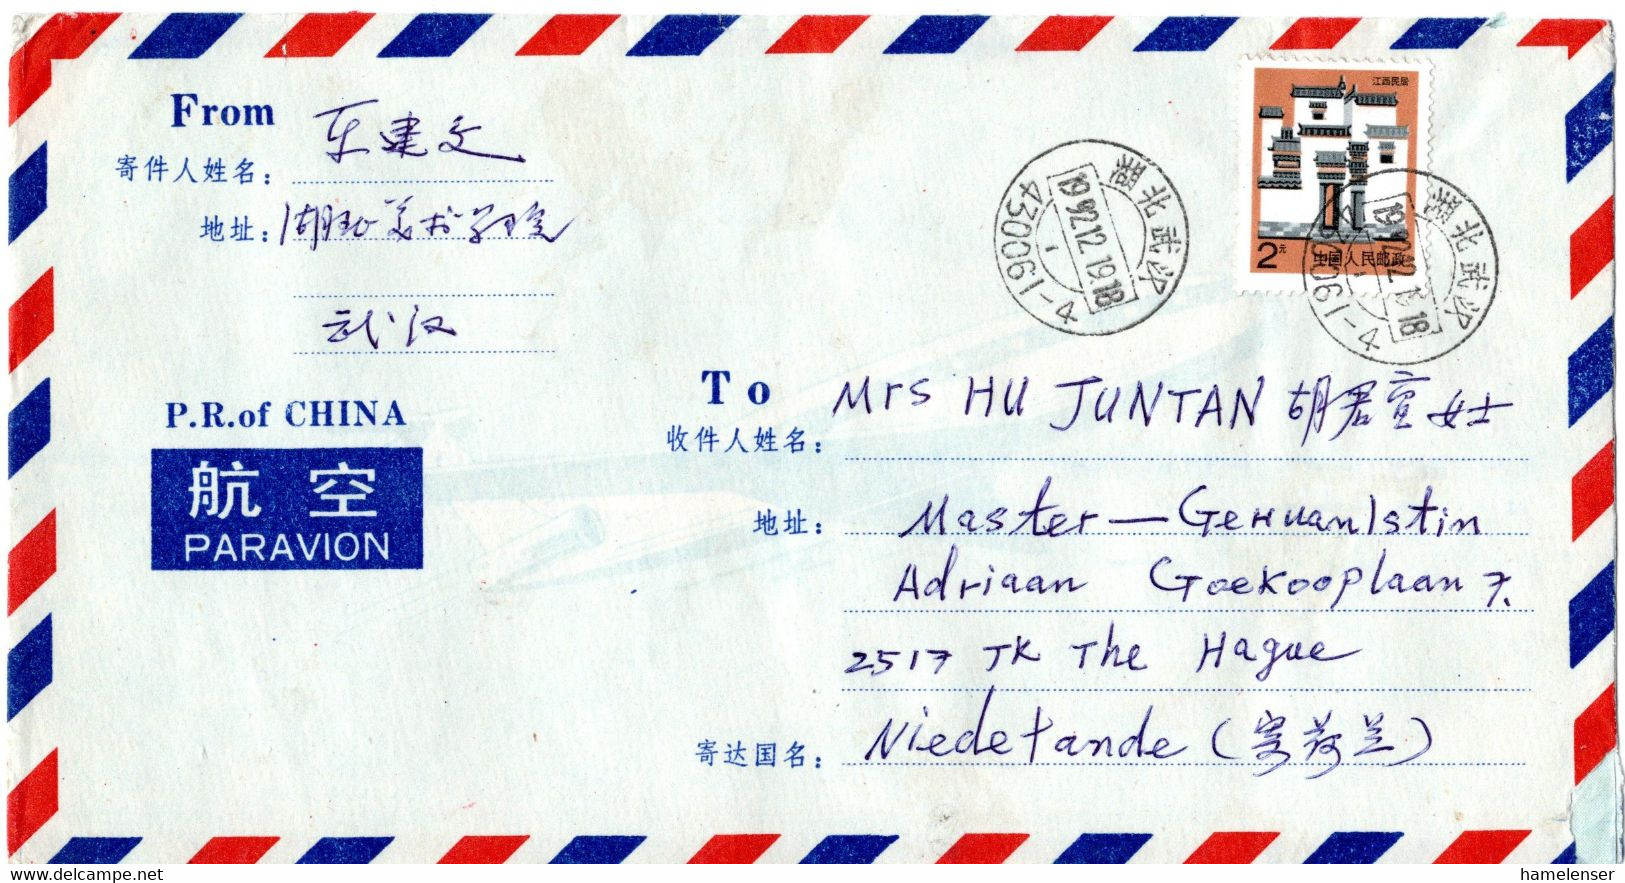 From
东建文
寄件人姓名：
地址：湖北美术学院
武汉
P.R.of CHINA
航空
PARAVION
江西民居
2元
中国人民邮政
湖北武汉
1992.12.19.18
430061-4
湖北武汉
1992.12.19.18
430061-4
To
Mrs HU JUNTAN 胡君萱 女士
收件人姓名：
地址：
Master—GeHuanIstin
Adriaan Goekooplaan 7.
2517 TK The Hague
寄达国名：
Niedetande (寄荷兰)
hamelenser